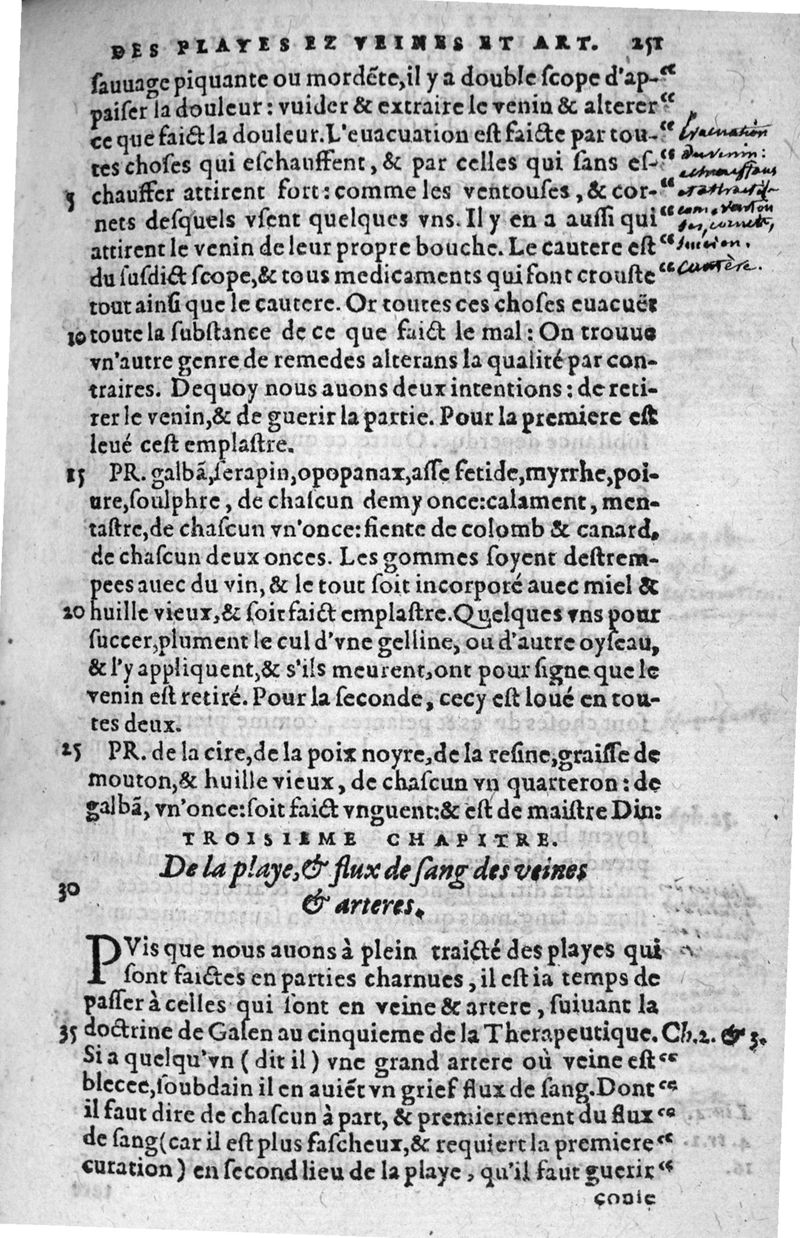 DES PLAYES EZ VEINES ET ART. 251
sauuage piquante ou mordẽte, il y a double scope d'ap-“
paiser la douleur: vuider & extraire le venin & alterer“
ce que faict la douleur. L'euacuation est faicte par tou-“ Evacuation
tes choses qui eschauffent, & par celles qui sans es-“ du venin:
5 chauffer attirent fort: comme les ventouses, & cor-“
nets desquels vsent quelques vns. Il y en a aussi qui“
attirent le venin de leur propre bouche. Le cautere est“ succion.
du susdict scope, & tous medicaments qui font crouste“ Cautère.
tout ainsi que le cautere. Or toutes ces choses euacuẽt
10 toute la substance de ce que faict le mal: On trouue
vn'autre genre de remedes alterans la qualité par con-
traires. Dequoy nous auons deux intentions: de reti-
rer le venin, & de guerir la partie. Pour la premiere est
leué cest emplastre.
15 PR. galbã, serapin, opopanax, asse fetide, myrrhe, poi-
ure, soulphre, de chascun demy once: calament, men-
tastre, de chascun vn'once: fiente de colomb & canard,
de chascun deux onces. Les gommes soyent destrem-
pees auec du vin, & le tout soit incorporé auec miel &
20 huille vieux, & soit faict emplastre. Quelques vns pour
succer, plument le cul d'vne gelline, ou d'autre oyseau,
& l'y appliquent, & s'ils meurent, ont pour signe que le
venin est retiré. Pour la seconde, cecy est loué en tou-
tes deux.
25 PR. de la cire, de la poix noyre, de la resine, graisse de
mouton, & huille vieux, de chascun vn quarteron: de
galbã, vn'once: soit faict vnguent: & est de maistre Din:
TROISIEME CHAPITRE.
De la playe, & flux de sang des veines
30 & arteres.
PVis que nous auons à plein traicté des playes qui
sont faictes en parties charnues, il est ia temps de
passer à celles qui sont en veine & artere, suiuant la
35 doctrine de Galen au cinquieme de la Therapeutique. Ch. 2. & 3.
Si a quelqu'vn (dit il) vne grand artere où veine est“
blecee, soubdain il en auiẽt vn grief flux de sang. Dont“
il faut dire de chascun à part, & premierement du flux“
de sang (car il est plus fascheux, & requiert la premiere“
curation) en second lieu de la playe, qu'il faut guerir“
conie